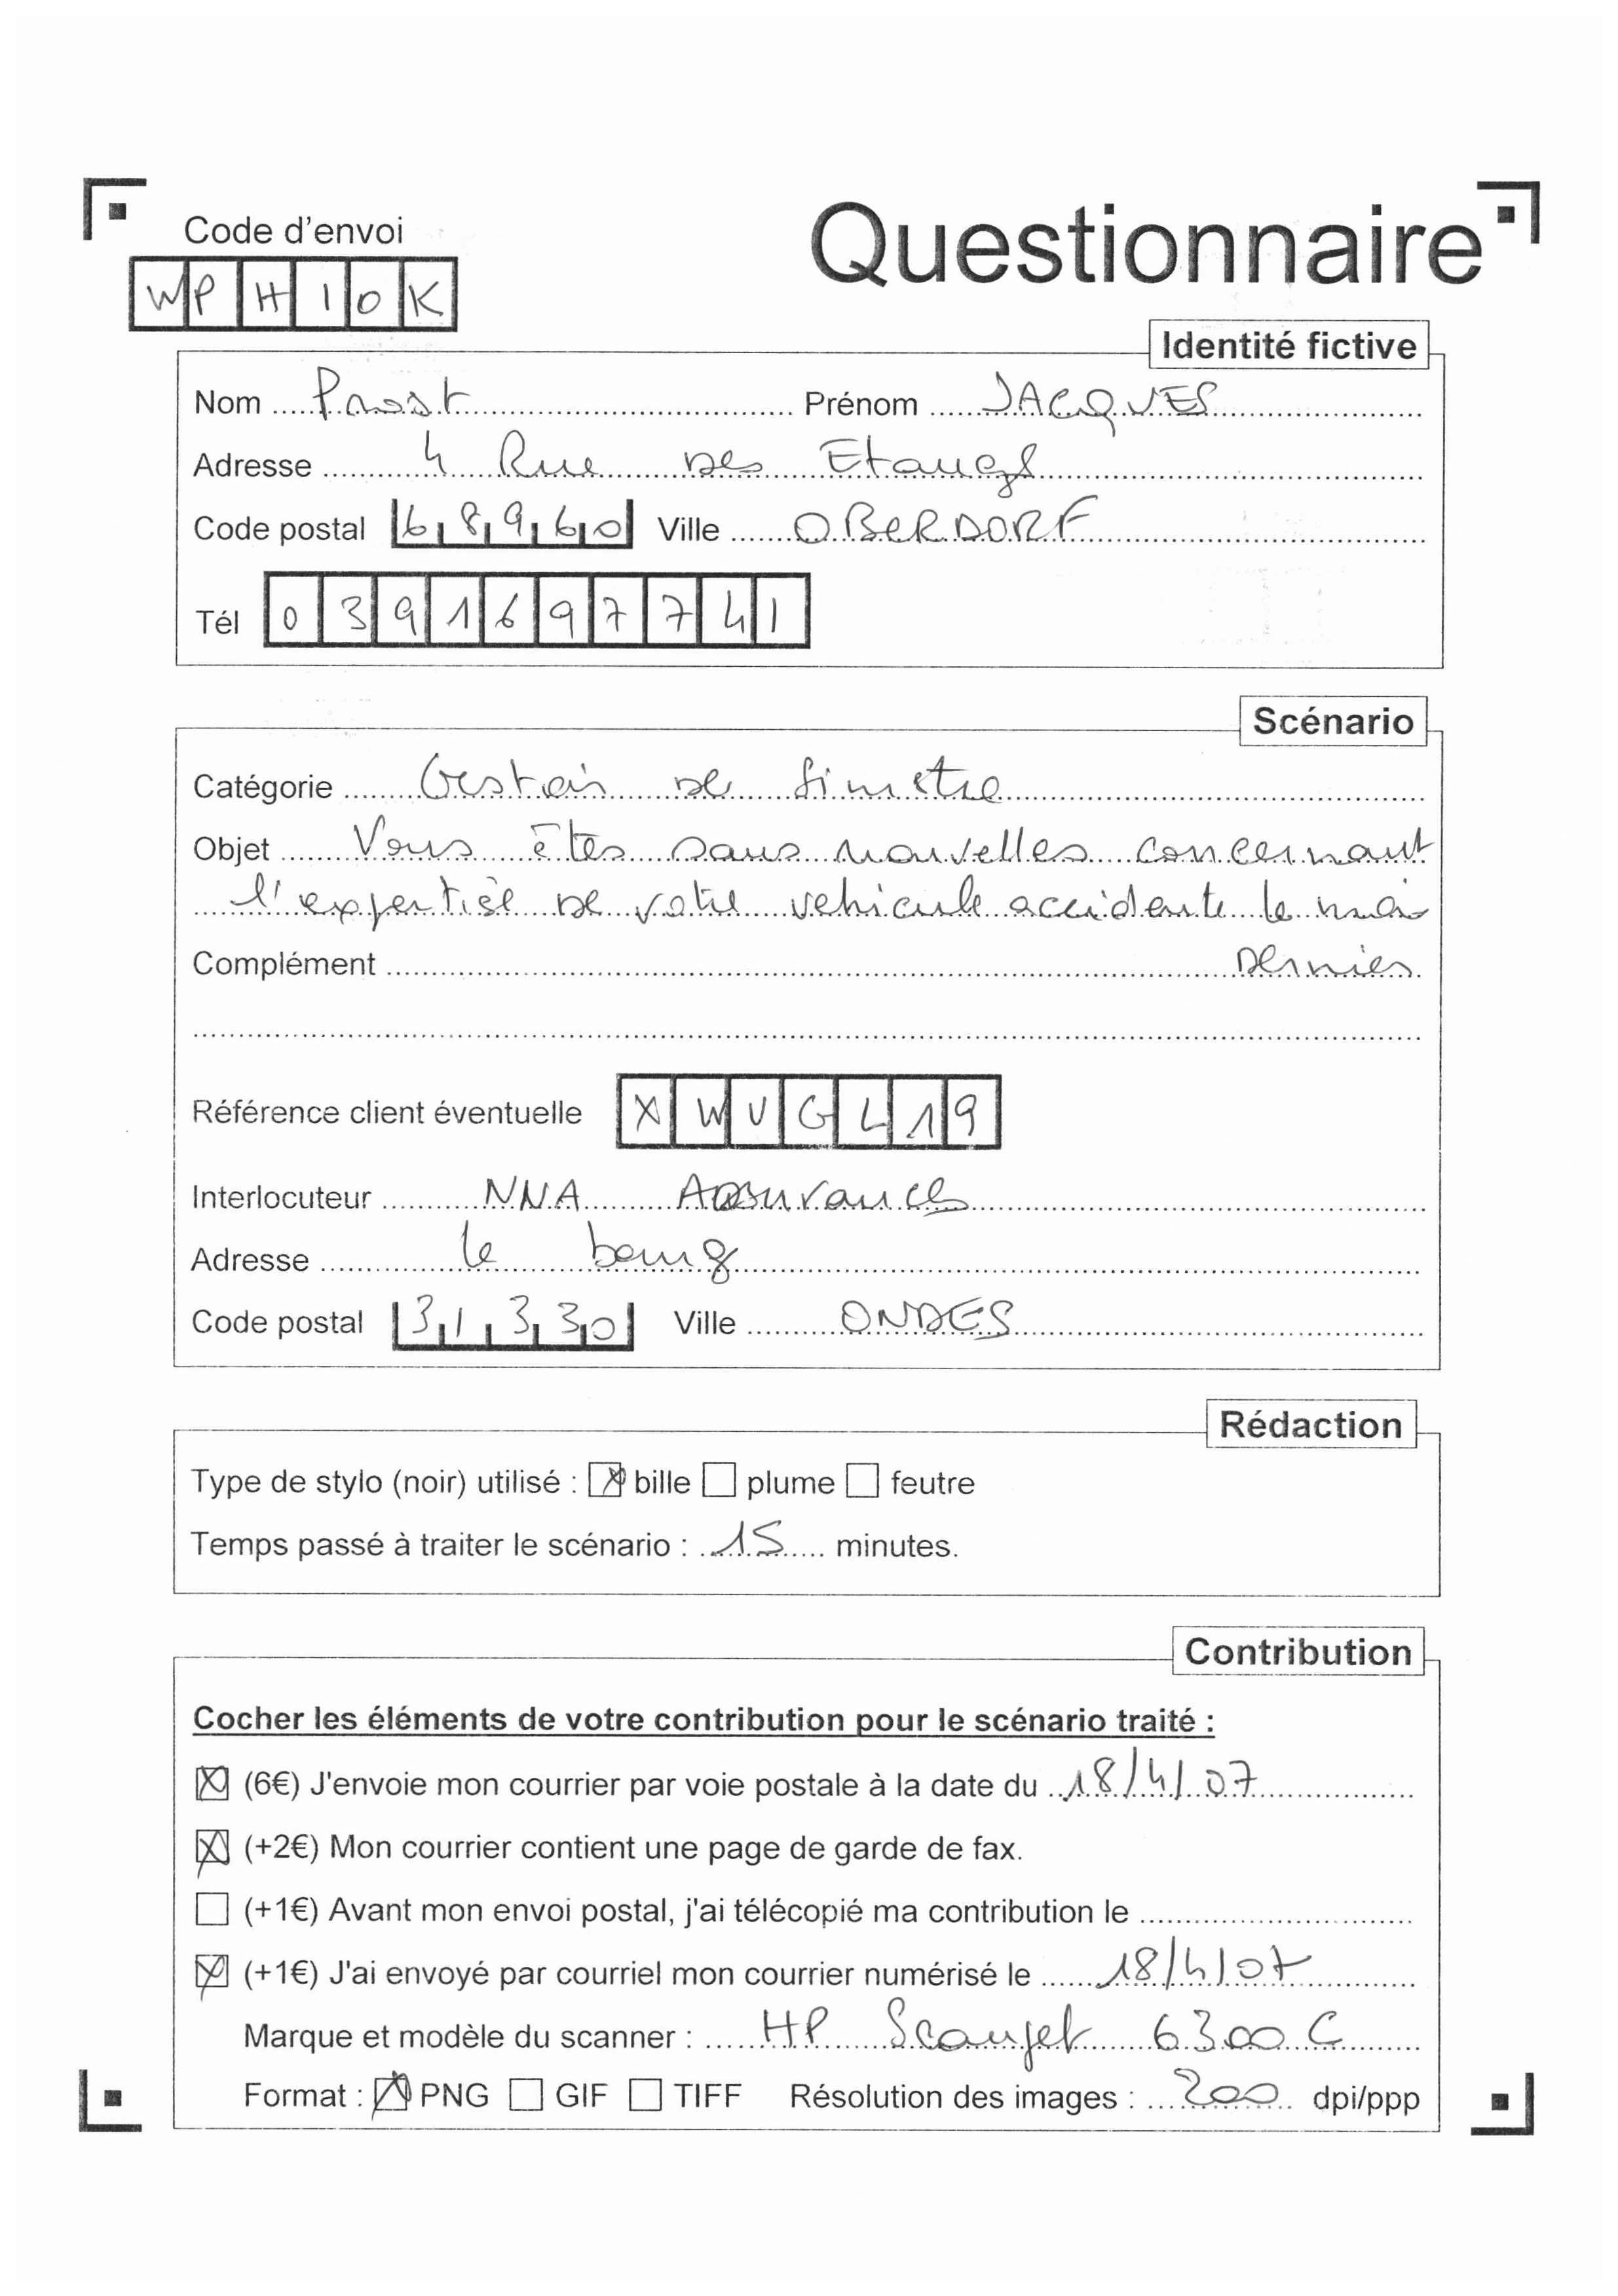 Code d'envoi
WPH10K
Questionnaire
Identité fictive
Nom Prost Prénom JACQUES
Adresse 4 Rue Des Etangs
Code postal 68960 Ville OBERDORF
Tél 0391697741
Scénario
Catégorie Gestion de sinistre
Objet Vous êtes sans nouvelles concernant
l'expertise de votre vehicule accidente le mois
Complément dernier
Référence client éventuelle XWUGL19
Interlocuteur NNA Assurances
Adresse le bourg
Code postal 31330 Ville ONDES
Rédaction
Type de stylo (noir) utilisé : bille plume feutre
Temps passé à traiter le scénario : 15 minutes.
Contribution
Cocher les éléments de votre contribution pour le scénario traité :
(6€) J'envoie mon courrier par voie postale à la date du 18/4/07
(+2€) Mon courrier contient une page de garde de fax.
(+1€) Avant mon envoi postal, j'ai télécopié ma contribution le
(+1€) J'ai envoyé par courriel mon courrier numérisé le 18/4/07
Marque et modèle du scanner : HP Scanjet 6300 C
Format : PNG GIF TIFF Résolution des images : 200 dpi/ppp